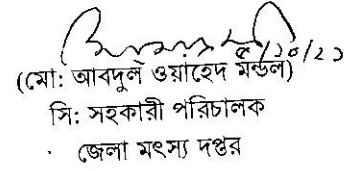 ৫/১০/২১
(মো: আবদুল ওয়াহেদ মন্ডল)
সি: সহকারী পরিচালক
জেলা মৎস্য দপ্তর